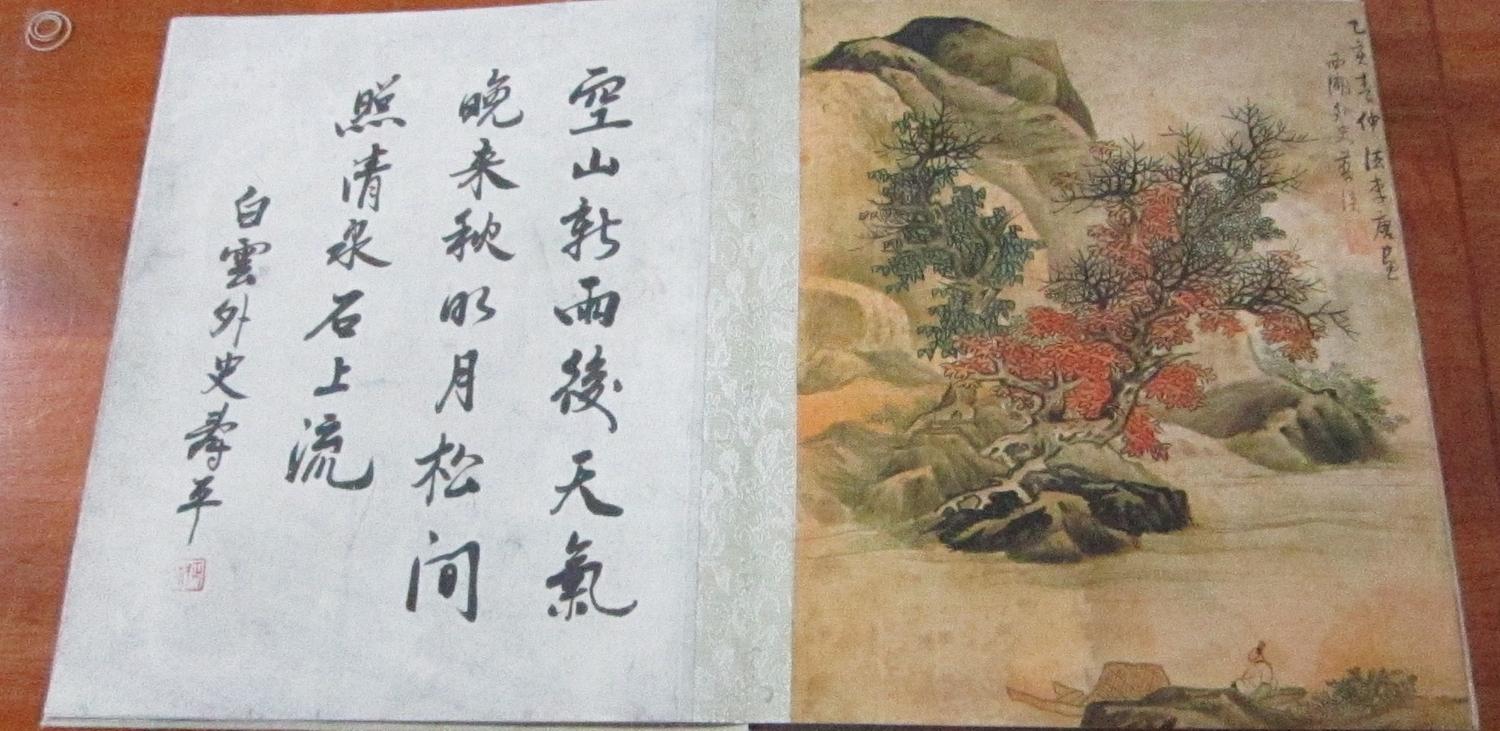 乙亥春仲法李唐畫
西湖外史藍瑛
空山新雨後天氣
晚来秋明月松间
照清泉石上流
白雲外史壽平